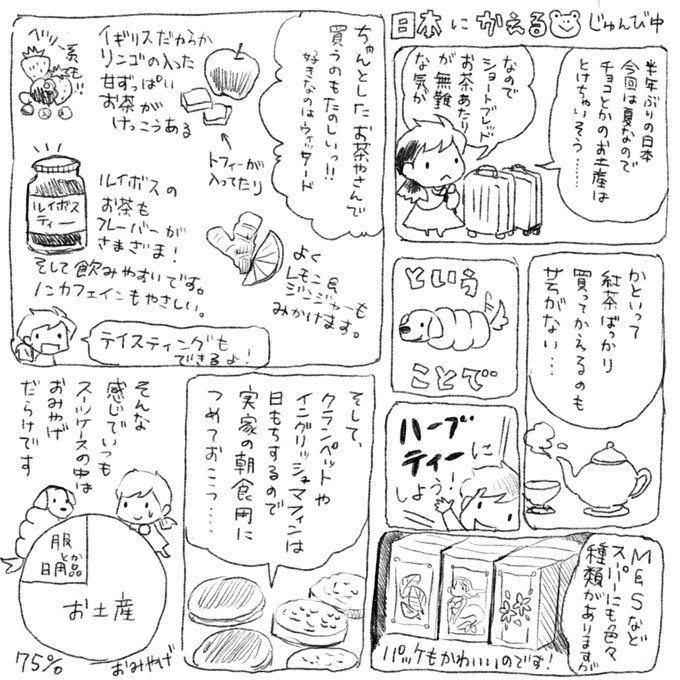 日本にかえる じゅんび中
半年ぶりの日本
今回は夏なので
チョコとかのお土産は
とけちゃいそう……
なので
ショートブレッド
お茶あたり
が無難
な気が
かといって
紅茶ばっかり
買ってかえるのも
芸がない…
という
ことで
ハーブ
ティーに
しよう！
M&Sなど
スーパーにも色々
種類がありますが
パッケもかわいいのです！
ちゃんとしたお茶やさんで
買うのもたのしいっ!!
好きなのはウィッタード
イギリスだからか
リンゴの入った
甘ずっぱい
お茶が
けっこうある
トフィーが
入ってたり
ベリー
系も!!
ルイボス
ティー
ルイボスの
お茶も
フレーバーが
さまざま！
そして飲みやすいです。
ノンカフェインもやさしい。
よく
レモン&
ジンジャーも
みかけます。
テイスティングも
できるよ！
そして、
クランペットや
イングリッシュマフィンは
日もちするので
実家の朝食用に
つめておこう……
そんな
感じでいつも
スーツケースの中は
おみやげ
だらけです
服
とか
日用品
お土産
75%
おみやげ